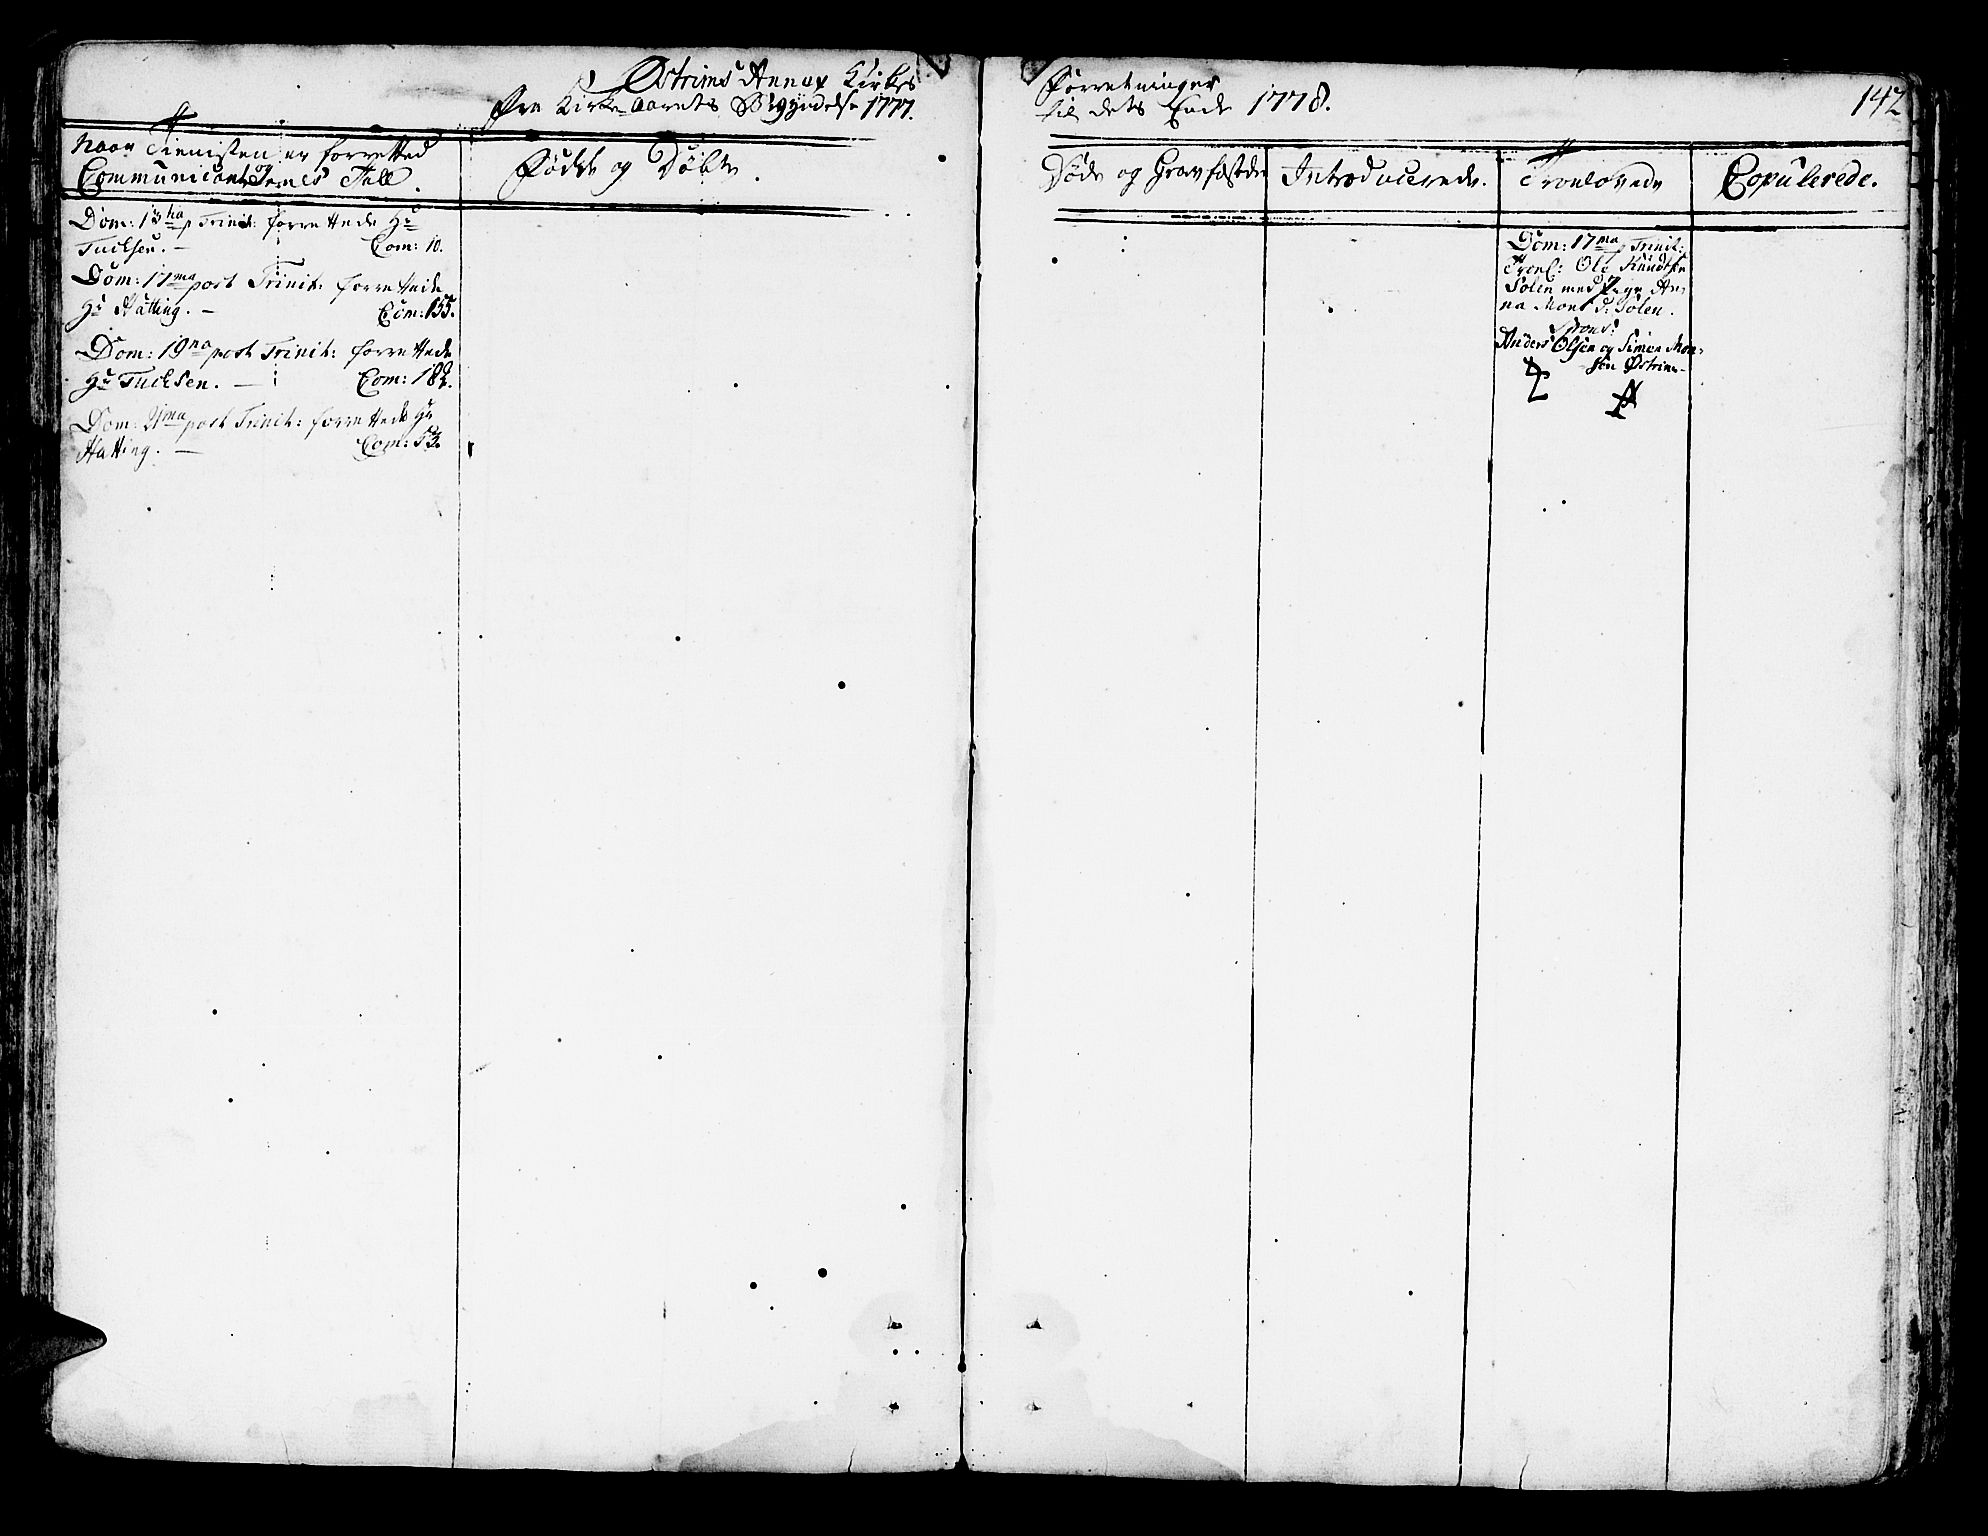 Østrims Annex Kirkes
Forretninger
Fra Kirke-Aarets Begyndelse 1777.
til dets Ende 1778.
142
Naar Tienisten er forretted
og
Communicanternes Tall.
Fødde og Døbte.
Døde og Gravfæstede
Introducerede.
Trolovede
Copulerede.
Dom: 13tia p Trinit: forrettede Hr
Tuchsen. - Com: 10.
Dom: 17ma post Trinit: forrettede
Hr Hatting. - Com: 155.
Dom: 19na post Trinit: forrettede
Hr Tuchsen. - Com: 182.
Dom: 21ma post Trinit: forrettede Hr
Hatting. - Com: 53.
Dom: 17ma p Trinit:
Trol: Ole Knudsen
Solem med Pige An-
na Mons D: Solem.
Spons:
Anders Olsen og Simen Mon-
sen Østrim